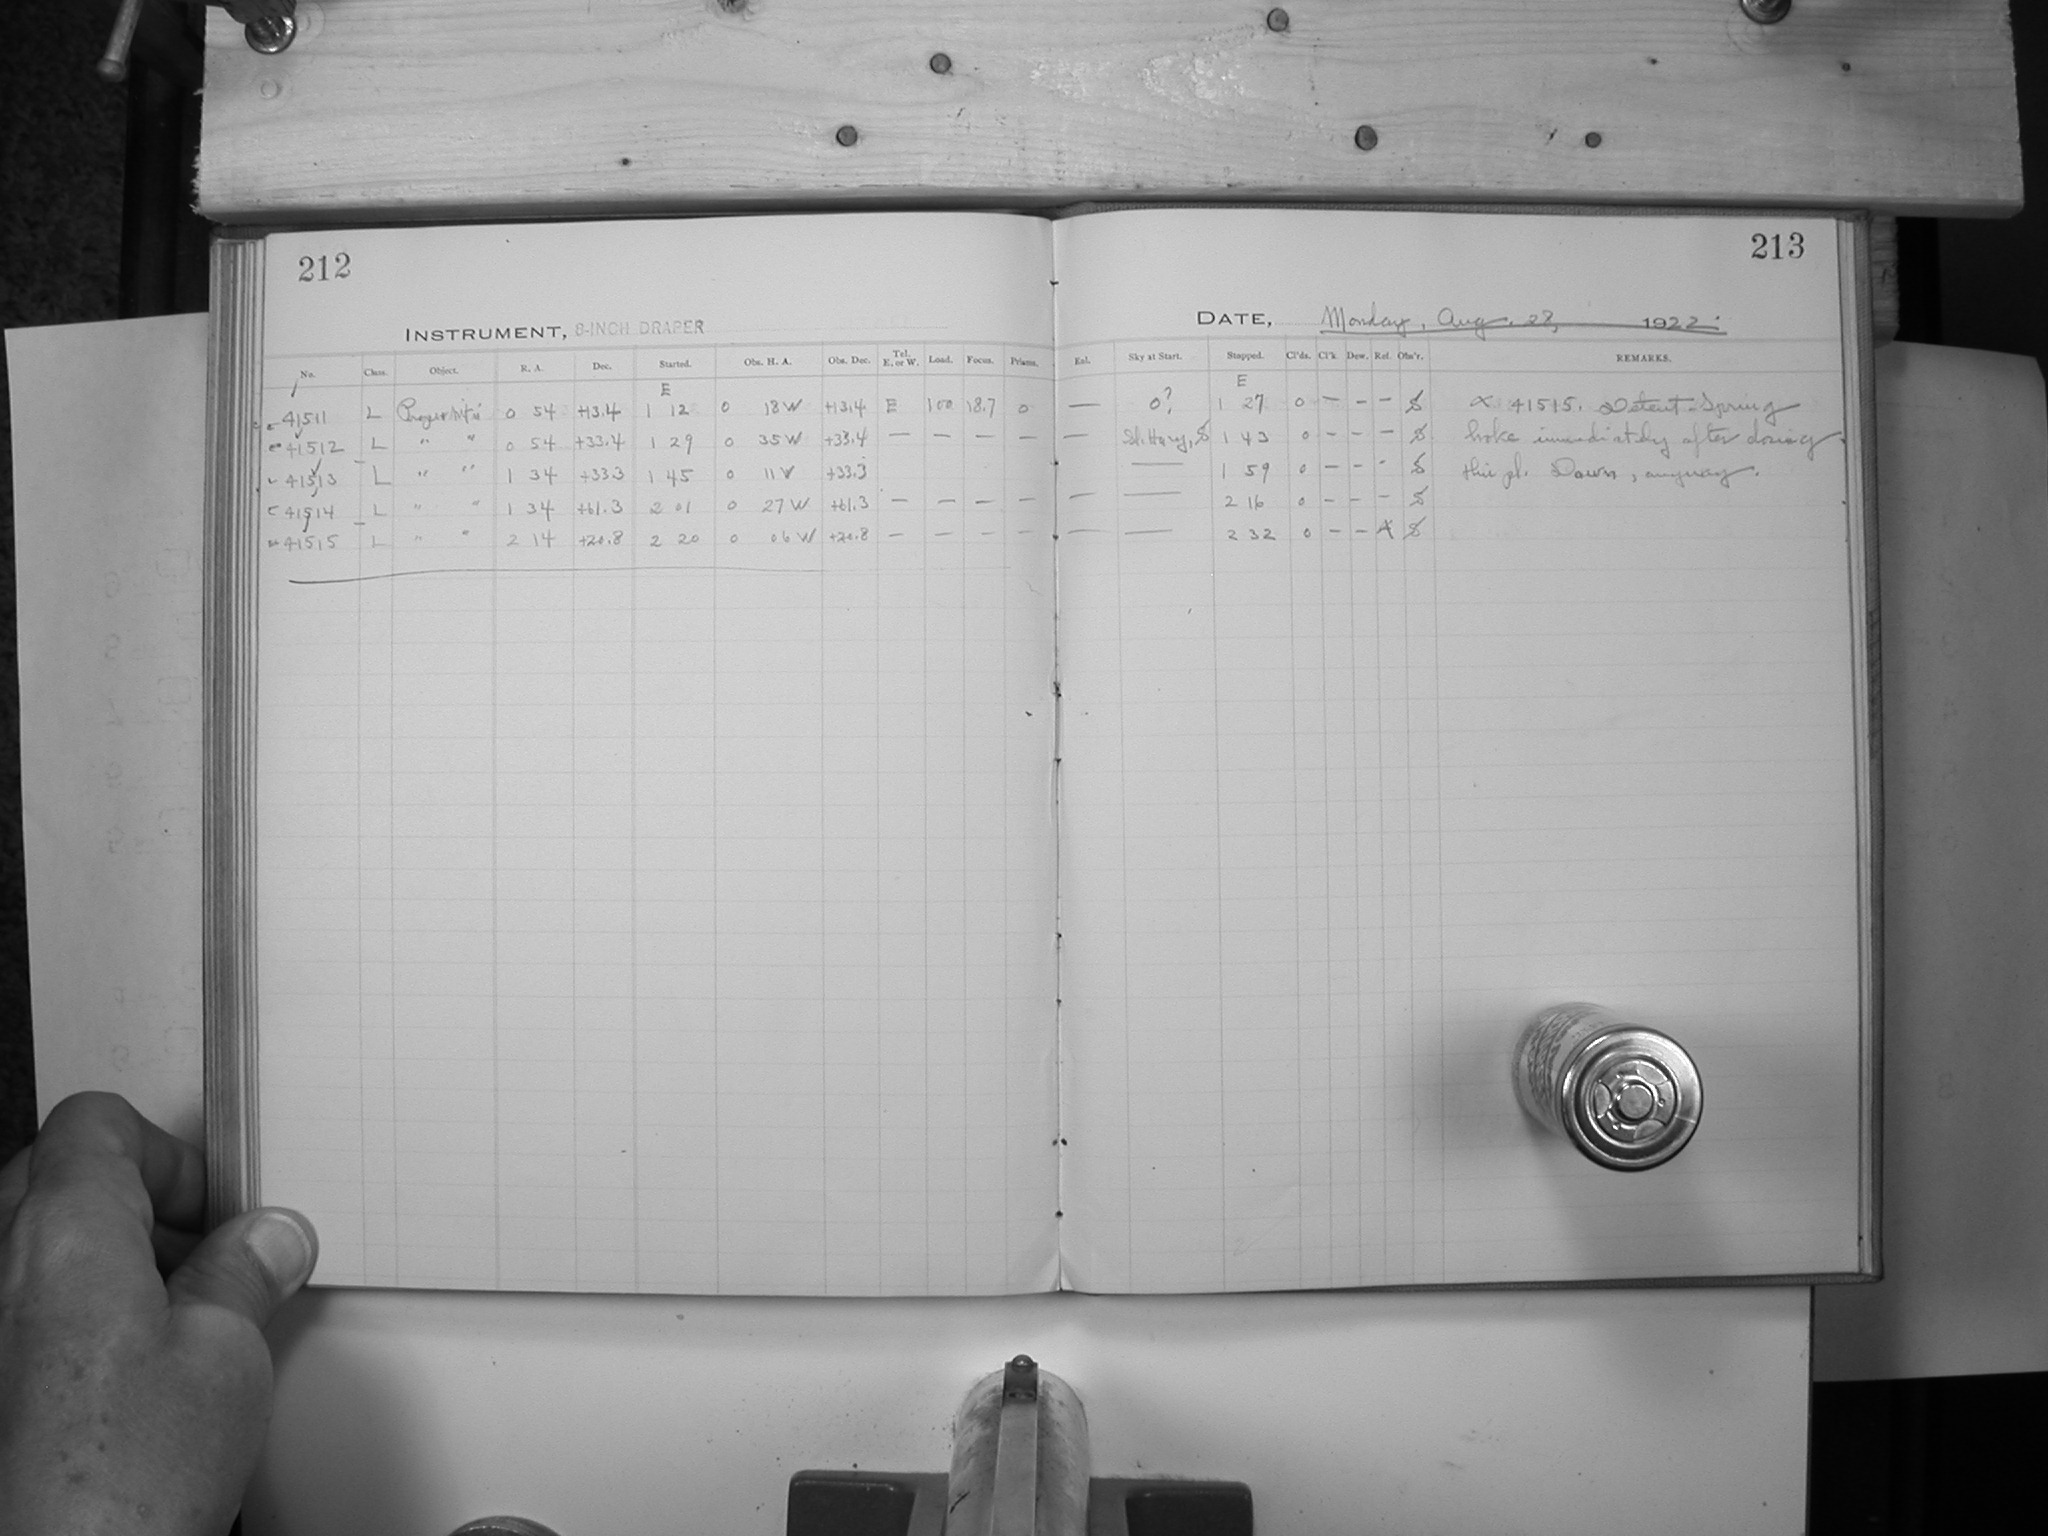 212
213
INSTRUMENT, 8-INCH DRAPER
DATE, Monday, Aug. 28, 1922.
No. Class. Object. R. A. Dec. Started. Obs. H. A. Obs. Dec. Tel. E. or W. Load. Focus. Prisms. Eal. Sky at Start. Stopped. Cl'ds. Cl'k. Dew. Ref. Obs'r. REMARKS.
E E
41511 L 0 54 +13.4 1 12 0 18 W +13.4 E 100 18.7 0 — 0? 1 27 0 – – – S α 41515. Detent-Spring
41512 L " " 0 54 +33.4 1 29 0 35 W +33.4 — — — — — Sl. Hazy, S 1 43 0 – – – S broke immediately after closing
41513 L " " 1 34 +33.3 1 45 0 11 W +33.3 — 1 59 0 – – - S this pl. Dawn, anyway.
41514 L " " 1 34 +61.3 2 01 0 27 W +61.3 — — — — — — 2 16 0 – – – S
41515 L " " 2 14 +20.8 2 20 0 06 W +20.8 — — — — — — 2 32 0 – – α S